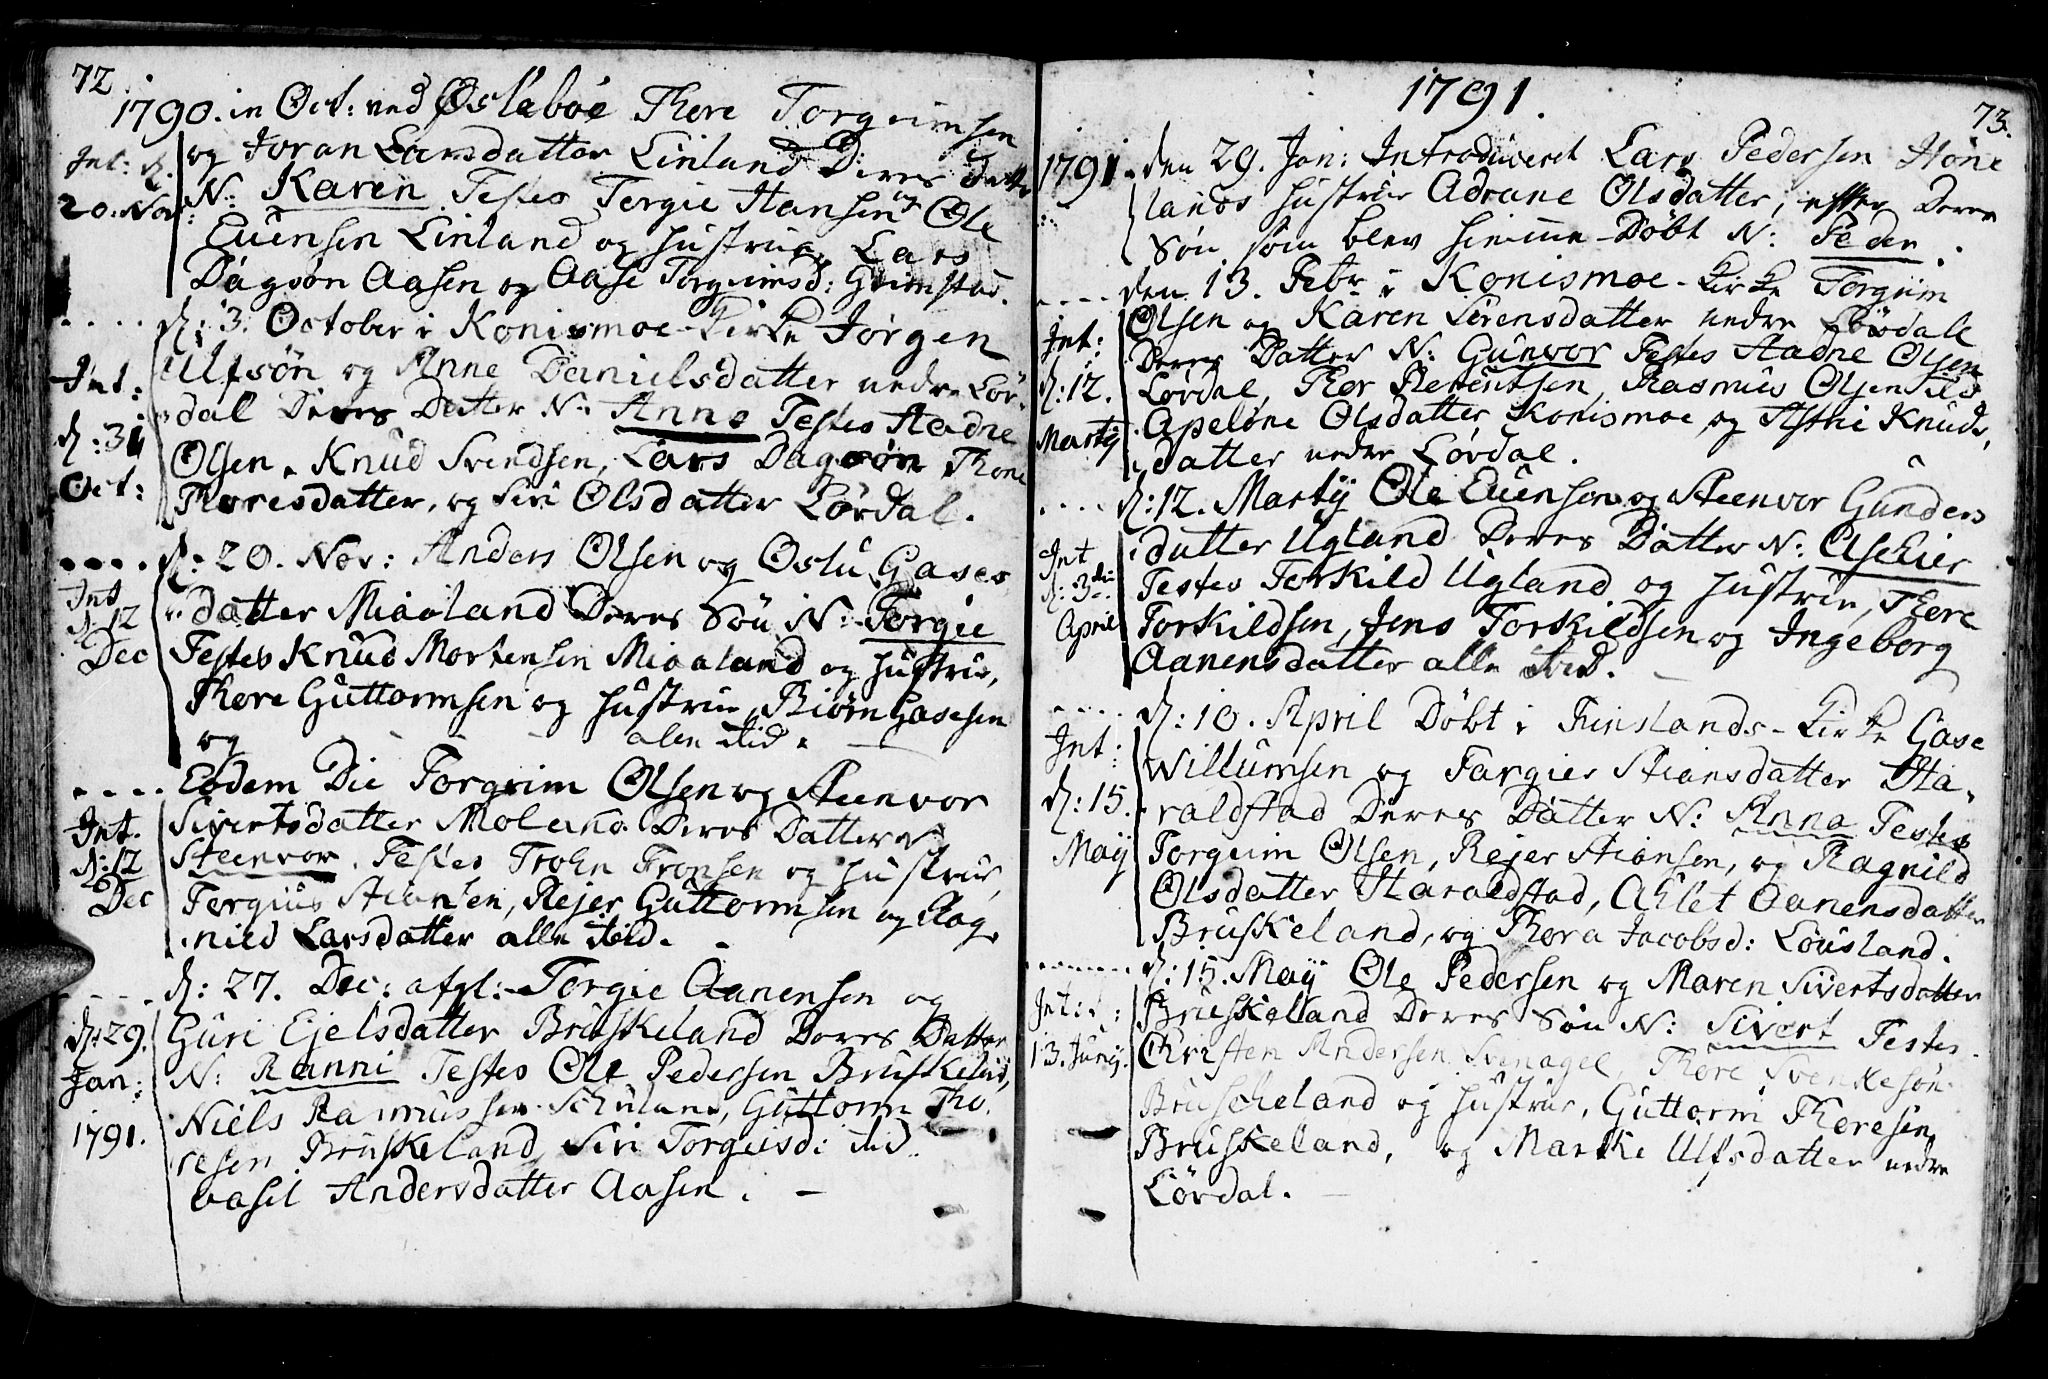 72.
1790. in Oct: ved Øslebøe Thore Torgrimsen
og Joran Larsdatter Linland Deres Datter
Int: d.
N: Karen Testes Tergie Hansen, Ole
20. Nov:
Evensen Linland og Hustrue, Lars
Dagsøn Aasen og Aase Torgrimsd: Grimstad.
d: 3. October i Konismoe-Kirke Jørgen
Ulfsøn og Anne Danielsdatter nedre Lør-
Int:
dal Deres Datter N: Anne Testes Aadne
d: 31
Olsen, Knud Svendsen, Lars Dagsøn, Thone
Oct:
Thoresdatter, og Siri Olsdatter Lørdal.
d: 20. Nov: Anders Olsen og Oslu Gases
Int
datter Miaaland Deres Søn N: Torgie
d. 12
Testes Knud Mortensen Miaaland og Hustrue,
Dec
Thore Guttormsen og Hustrue, Biørn Gasesen
og alle ibid.
Eodem Die Torgrim Olsen og Steenvor
Sivertsdatter Moland Deres Datter N:
Int.
d: 12
Steenvor, Testes Troen Tronsen og Hustrue,
Dec
Tergius Stiansen, Rejer Guttormsen og Rag-
nild Larsdatter alle ibid.
d: 27. Dec: afgl: Torgie Aanensen og
d: 29.
Guri Ejelsdatter Bruskeland Deres Datter
Jan:
N: Ranni Testes Ole Pedersen Bruskeland,
1791.
Niels Rasmussen Schuland, Guttorm Tho-
resen Bruskeland, Siri Torgiusd: ibid.
Aasel Andersdatter Aasen.
1791.
73.
1791. den 29. Jan: Introduceret Lars Pedersen Høne
lands Hustrue Adrane Olsdatter, efter Deres
Søn som blev hiemme-Døbt N: Peder.
den 13. Febr: i Konismoe-Kirke Torgrim
Olsen og Karen Sørensdatter nedre Lørdal
Int:
Deres Datter N: Gunvor Testes Aadne Olsen
d: 12.
Lørdal, Thor Berentsen, Rasmus Olsen ibid.
Martij
Apeløne Olsdatter Konismoe og Asthi Knuds-
datter nedre Lørdal.
d: 12. Martij Ole Evensen og Steenvor Gunders
datter Ugland Deres Datter N: Aseier
Int
d: 3die
Testes Torkild Ugland og Hustrue, Thore
April
Torkildsen, Jens Torkildsen og Ingeborg
Aanensdatter alle ibid.
d: 10. April Døbt i Finslands-Kirke Gase
Int:
Willumsen og Targier Stiansdatter Ha-
d: 15.
raldstad Deres Datter N: Anna Testes
May
Torgrim Olsen, Rejer Stiansen, og Ragnild
Olsdatter Haraldstad, Ahlet Aanensdatter
Bruskeland, og Thora Jacobsd: Lousland.
d: 15. May Ole Pedersen og Maren Sivertsdatter
Int:
Bruskeland Deres Søn N: Sivert Testes
13. Junij.
Christen Andersen Svenagel, Thore Svenkesøn
Bruscheland og Hustrue, Guttorm Thoresen
Bruskeland, og Marthe Ulfsdatter nedre
Lørdal.